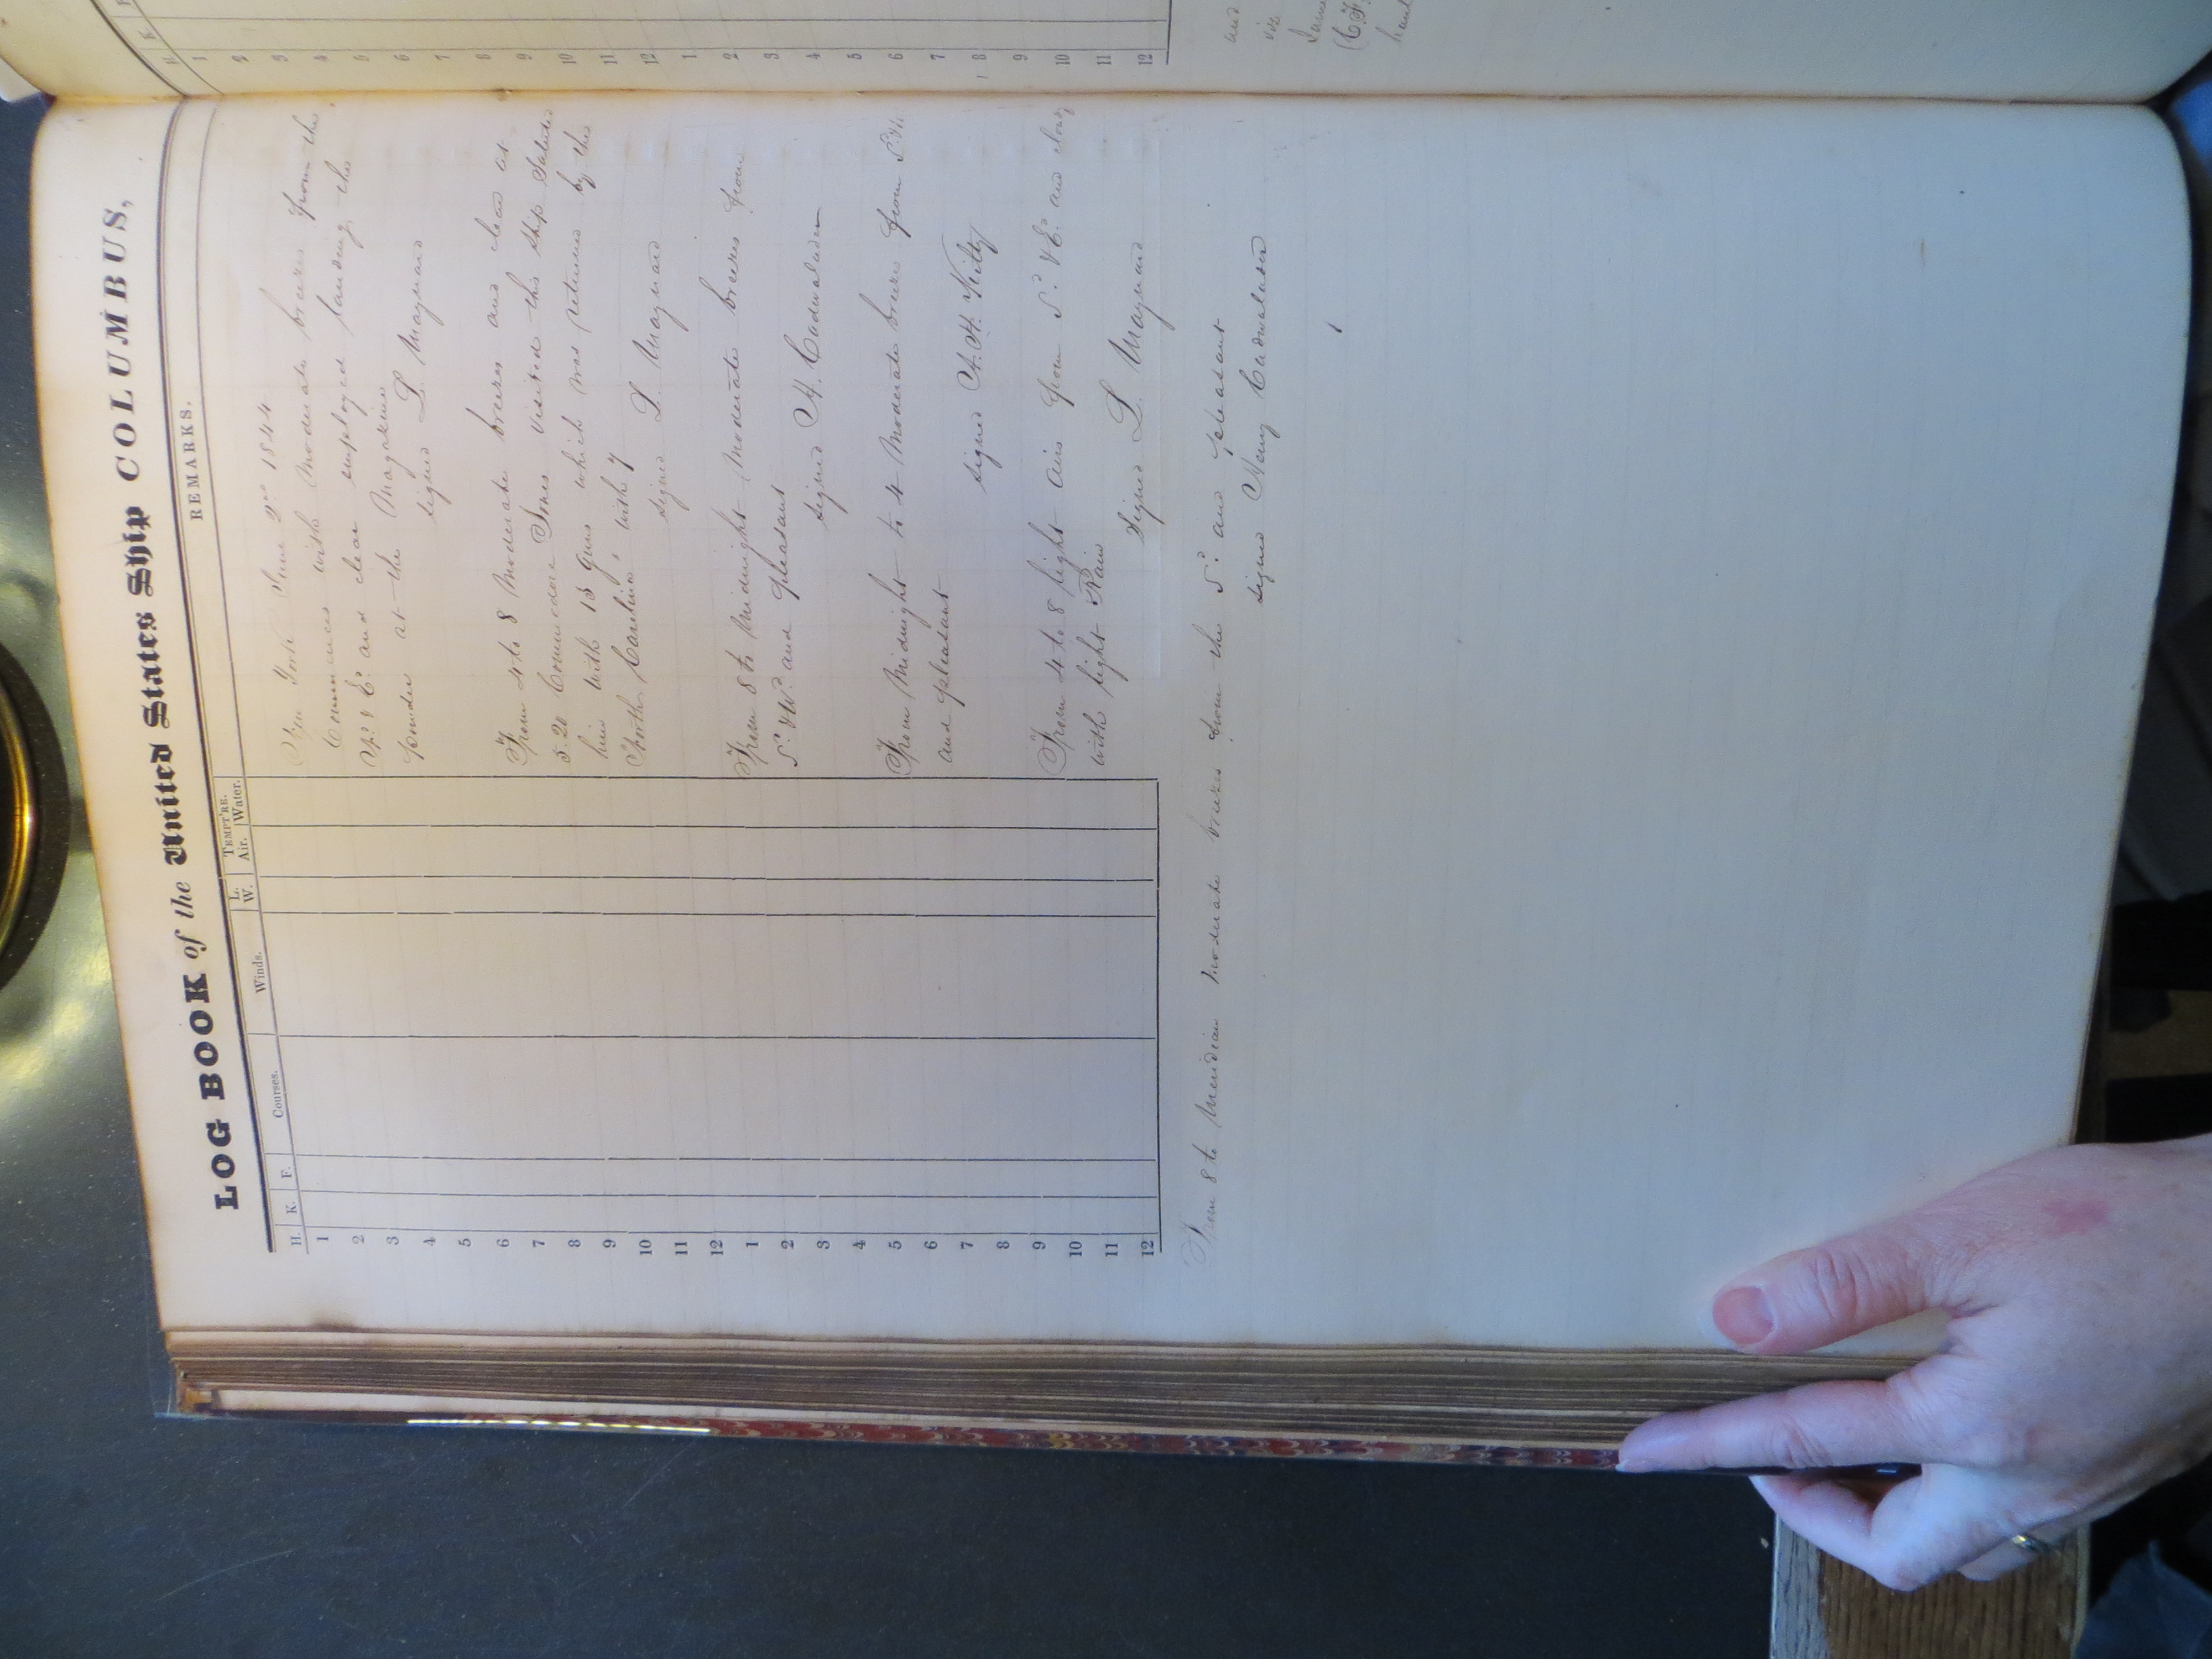 LOG BOOK of the United States Ship COLUMBUS,
H. K. F. Courses. Winds. L. W. TEMPT'RE. Air. Water. REMARKS.
1
2
3
4
5
6
7
8
9
10
11
12
1
2
3
4
5
6
7
8
9
10
11
12
New York June 2nd 1844
Commences with Moderate breezes from the
Nd & Ed and clear employed landing the
powder at the Magazine
signed L. Maynard
From 4 to 8 Moderate breezes and clear at
5.20 Commodore Jones visited this ship Saluted
him with 13 Guns which was returned by the
North Carolina, with 7
signed L. Maynard
From 8 to Midnight Moderate breezes from
Sd & Wd and pleasant
signed H. Cadwalader
From Midnight to 4 Moderate breezes from
and pleasant
signed A. H. Kilty
From 4 to 8 light airs from Sd & Ed and cloudy
with light Rain
Signed L. Maynard
From 8 to Meridian Moderate breezes from the Sd and pleasant
signed Henry Cadwalader
H. K.
1
2
3
4
5
6
7
8
9
10
11
12
1
2
3
4
5
6
7
8
9
10
11
12
and
viz